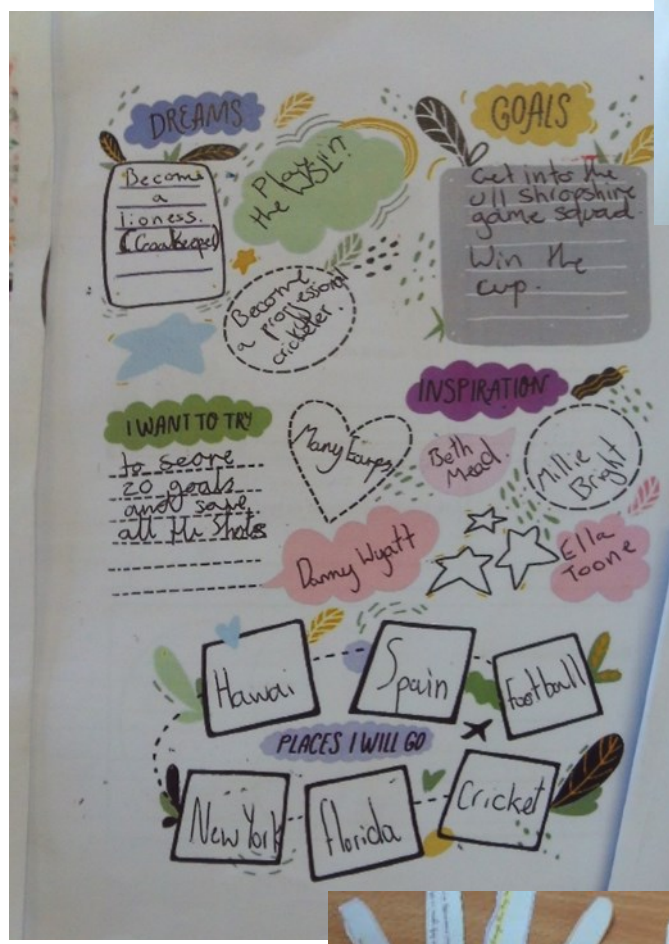 DREAMS
Become
a
lioness.
(Goalkeeper)
Play in
the WSL!
Become
a proffessional
cricketer.
GOALS
Get into the
U11 Shropshire
game squad.
Win the
cup.
I WANT TO TRY
to score
20 goals
and save
all the shots
INSPIRATION
Mary Earps
Beth
Mead.
Millie
Bright
Danny Wyatt
Ella
Toone
Hawai
Spain
Football
PLACES I WILL GO
New York
Florida
Cricket